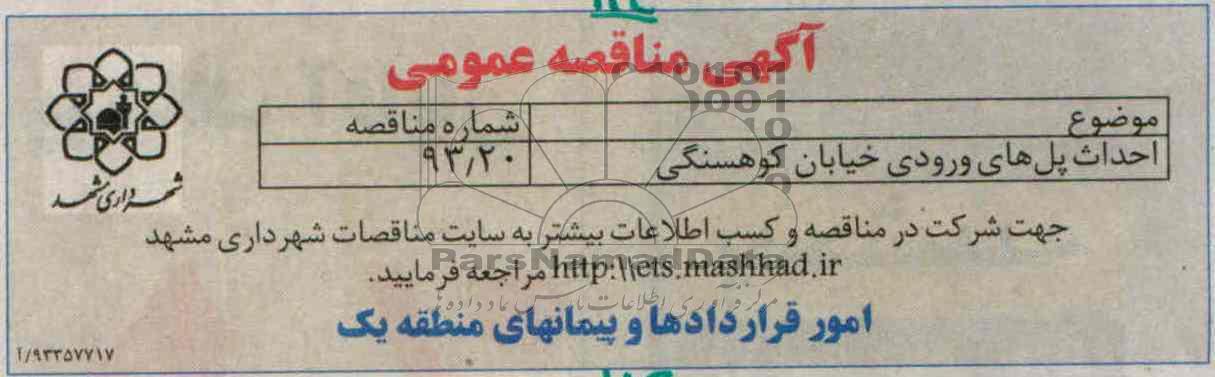 آگهی مناقصه عمومی
موضوع شماره مناقصه
احداث پل‌های ورودی خیابان کوهسنگی ۹۳/۲۰
شهرداری مشهد
جهت شرکت در مناقصه و کسب اطلاعات بیشتر به سایت مناقصات شهرداری مشهد
http:\\ets.mashhad.ir مراجعه فرمایید.
امور قراردادها و پیمانهای منطقه یک
۹۳۳۵۷۷۱۷/آ
ParsNamadData